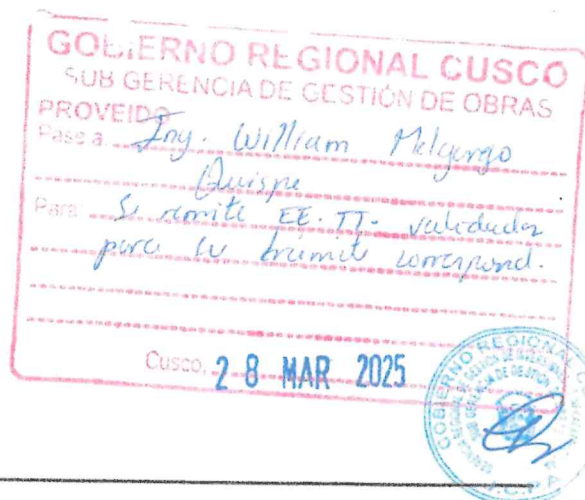 GOBIERNO REGIONAL CUSCO
SUB GERENCIA DE GESTIÓN DE OBRAS
PROVEIDO
Pase a Ing. William Melgarejo
Quispe
Para Se remite EE.TT. validadas
para su trámite correspond.
Cusco, 28 MAR 2025
GOBIERNO REGIONAL